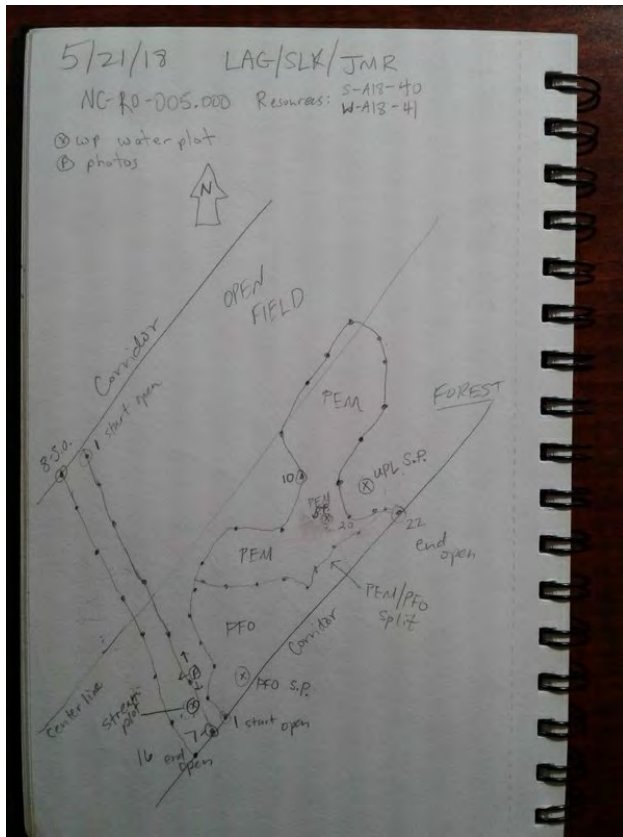 5/21/18 LAG/SLK/JMR
NC-RO-005.000 Resources: S-A18-40
W-A18-41
ⓧ wp water plot
Ⓟ photos
N
OPEN
FIELD
Corridor
1 start open
8-S.O.
PEM
FOREST
10
UPL S.P.
PEM
20
22
end
open
PEM
PEM/PFO
split
PFO
Corridor
center line
4
PFO S.P.
stream
plot
1 start open
7
16 end
open